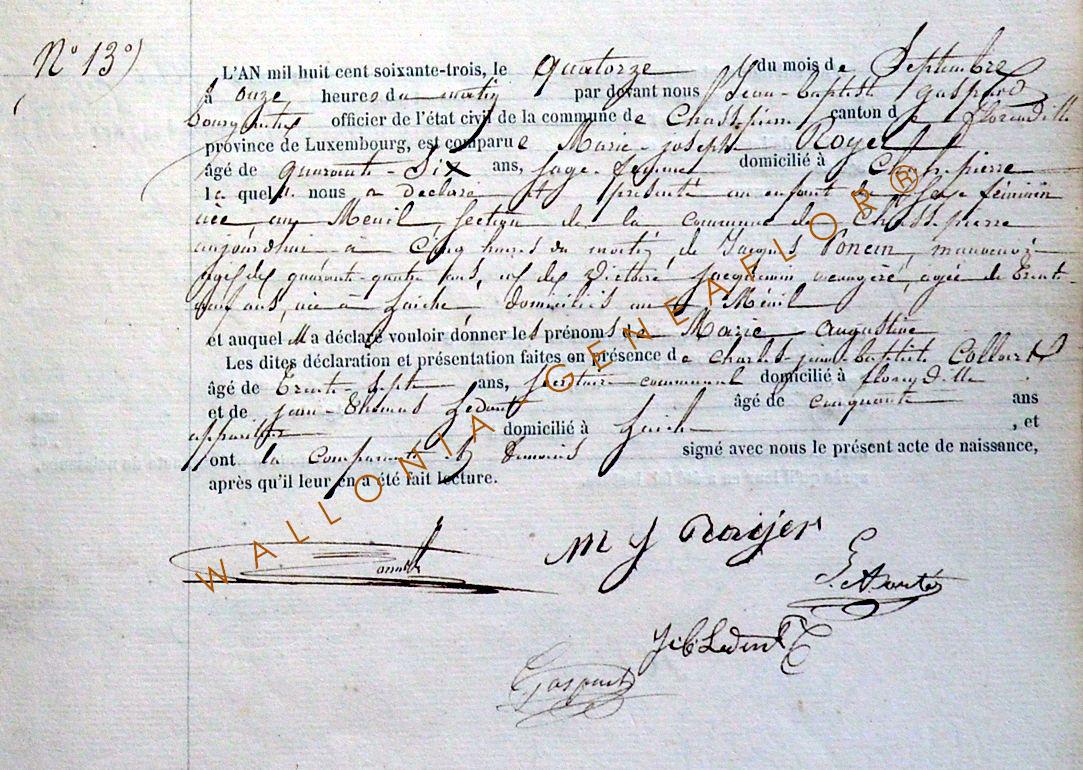 N° 13°)
L'AN mil huit cent soixante-trois, le quatorze du mois de Septembre
à onze heures du matin par devant nous Jean-baptiste gaspard
Bourgmestre officier de l'état civil de la commune de Chassepierre canton de florenville
province de Luxembourg, est comparue Marie-joseph Royer
âgé de quarante-Six ans, sage-femme domicilié à Chassepierre
laquelle nous a déclaré et présenté un enfant du sexe féminin
née au Menil, section de la commune de Chassepierre
aujourdhui à cinq heures du matin, de Jacques Poncin, manoeuvre
âgé de quarante-quatre ans, et de Victoire Jacquemin menagère, agée de trente-
neuf ans, née à Laiche, domiciliés au Ménil
et auquel Il a déclaré vouloir donner les prénoms de Marie Augustine
Les dites déclaration et présentation faites en présence de Charles-jean-baptiste
âgé de trente-sept ans, Secrétaire communal domicilié à florenville
et de jean-thomas Ledent âgé de cinquante ans
appariteur domicilié à Laiche, et
ont la comparante et témoins signé avec nous le présent acte de naissance,
après qu'il leur en a été fait lecture.
M J Roijer
Ledent
Gaspard
WALLONIA GENEAFLOR®